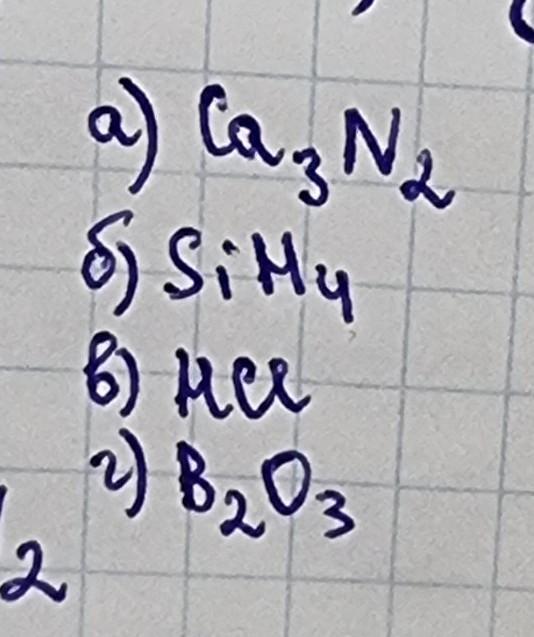 а) Ca₃N₂
б) SiH₄
в) HCl
г) B₂O₃
2